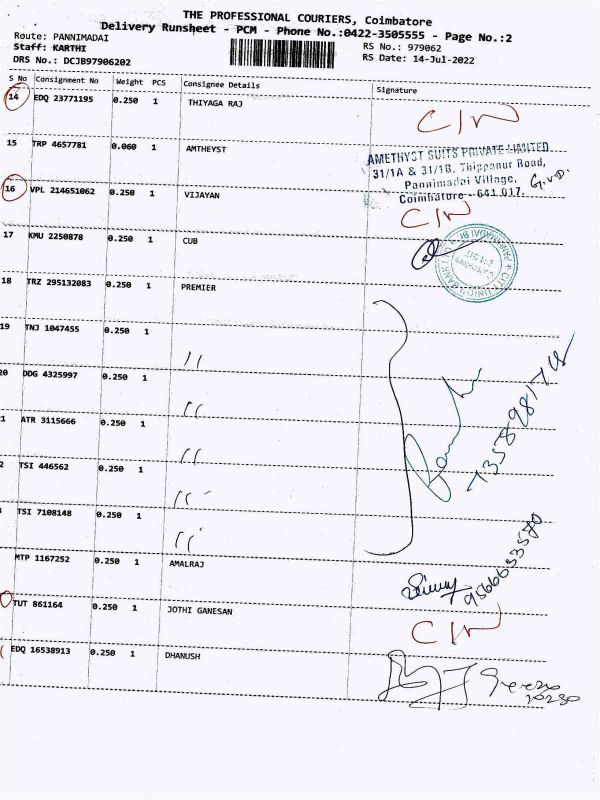 THE PROFESSIONAL COURIERS, Coimbatore
Delivery Runsheet - PCM - Phone No.:0422-3505555 - Page No.:2
Route: PANNIMADAI
Staff: KARTHI
RS No.: 979062
DRS No.: DCJB97906202
RS Date: 14-Jul-2022
S No Consignment No Weight PCS Consignee Details Signature
14 EDQ 23771195 0.250 1 THIYAGA RAJ
C/N
15 TRP 4657781 0.060 1 AMTHEYST
AMETHYST SUITS PRIVATE LIMITED
31/1A & 31/1B, Thippanur Road,
Pannimadai Village,
Coimbature - 641 017.
16 VPL 214651062 0.250 1 VIJAYAN
C/N
17 KMU 2250878 0.250 1 CUB
18 TRZ 295132083 0.250 1 PREMIER
19 TNJ 1047455 0.250 1 "
20 DDG 4325997 0.250 1 "
1 ATR 3115666 0.250 1 "
2 TSI 446562 0.250 1 "
TSI 7108148 0.250 1 "
MTP 1167252 0.250 1 AMALRAJ
9566633570
TUT 861164 0.250 1 JOTHI GANESAN
C/N
EDQ 16538913 0.250 1 DHANUSH